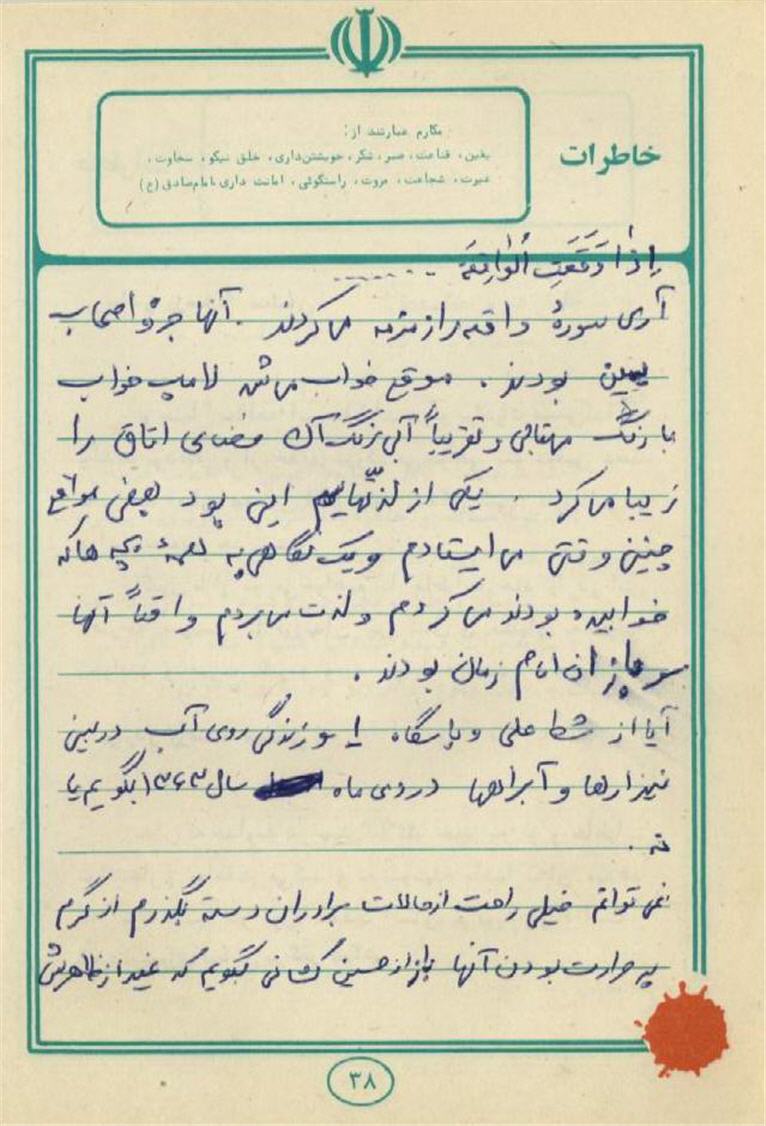 خاطرات
مکارم عبارتند از:
یقین، قناعت، صبر، شکر، خویشتن‌داری، خلق نیکو، سخاوت،
غیرت، شجاعت، مروت، راستگوئی، امانت داری.امام‌صادق (ع)
اِذا وَقَعَتِ اْلواقِعَة .......
آری سورهٔ واقعه را زمزمه می‌کردند. آنها جزو اصحاب
یمین بودند. موقع خواب می‌شد لامپ خواب
با رنگ مهتابی و تقریباً آبی رنگ آن فضای اتاق را
زیبا می‌کرد. یکی از لذّتهایم این بود بعضی مواقع
چنین وقتی می‌ایستادم و یک نگاهی به همهٔ بچه ها که
خوابیده بودند می‌کردم و لذت می‌بردم واقعاً آنها
سربازان امام زمان بودند.
آیا از شط علی و پاسگاه و زندگی روی آب در بین
نیزارها و آبراهها در دی ماه سال ۱۳۶۳ بگویم یا
نه.
نمی توانم خیلی راحت از حالات برادران دسته بگذرم از گرم
پر حرارت بودن آنها باز از حسین کاشانی بگویم که غیر از ظاهرش
۳۸